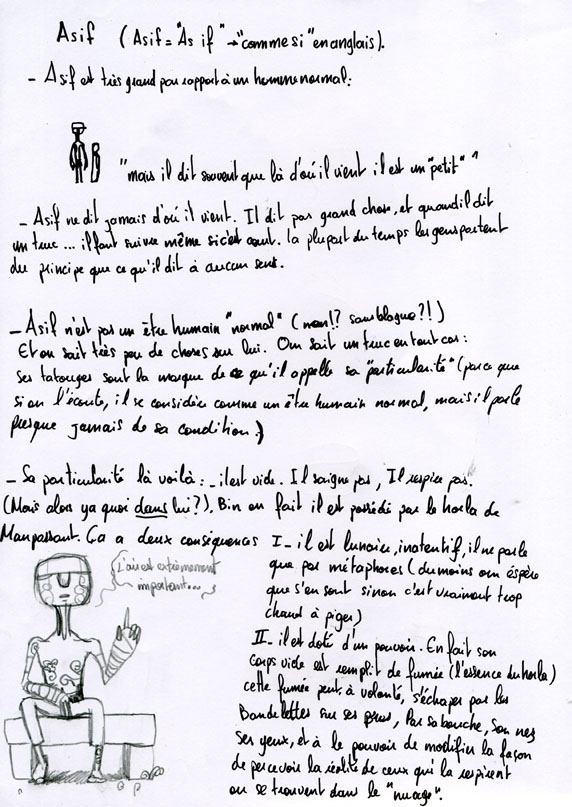 Asif (Asif = "As if" → "comme si" en anglais).
- Asif est très grand par rapport à un homme normal:
"mais il dit souvent que là d'où il vient il est un "petit" "
- Asif ne dit jamais d'où il vient. Il dit pas grand chose, et quand il dit
un truc ... il faut suivre même si c'est court. la plupart du temps les gens partent
du principe que ce qu'il dit à aucun sens.
- Asif n'est pas un être humain "normal" (non!? sans blague?!)
Et on sait très peu de choses sur lui. On sait un truc en tout cas:
Ses tatouages sont la marque de ce qu'il appelle sa "particularité" (parce que
si on l'écoute, il se considère comme un être humain normal, mais il parle
presque jamais de sa condition.)
- Sa particularité là voilà: - il est vide. Il saigne pas, Il respire pas.
(Mais alors ya quoi dans lui?), Bin en fait il est possédé par le horla de
Maupassant. Ca a deux conséquences I_ il est lunaire, inatentif, il ne parle
que par métaphores (du moins on éspère
que s'en sont sinon c'est vraiment trop
chaud à piger)
L'air est extrèmement
important...
II_ il est doté d'un pouvoir. En fait son
corps vide est remplit de fumée (l'essence du horla)
cette fumée peut, à volonté, s'échaper par les
Bandelettes sur ses bras, Par sa bouche, Son nez
Ses yeux, et à le pouvoir de modifier la façon
de percevoir la réalité de ceux qui la respirent
ou se trouvent dans le "nuage".